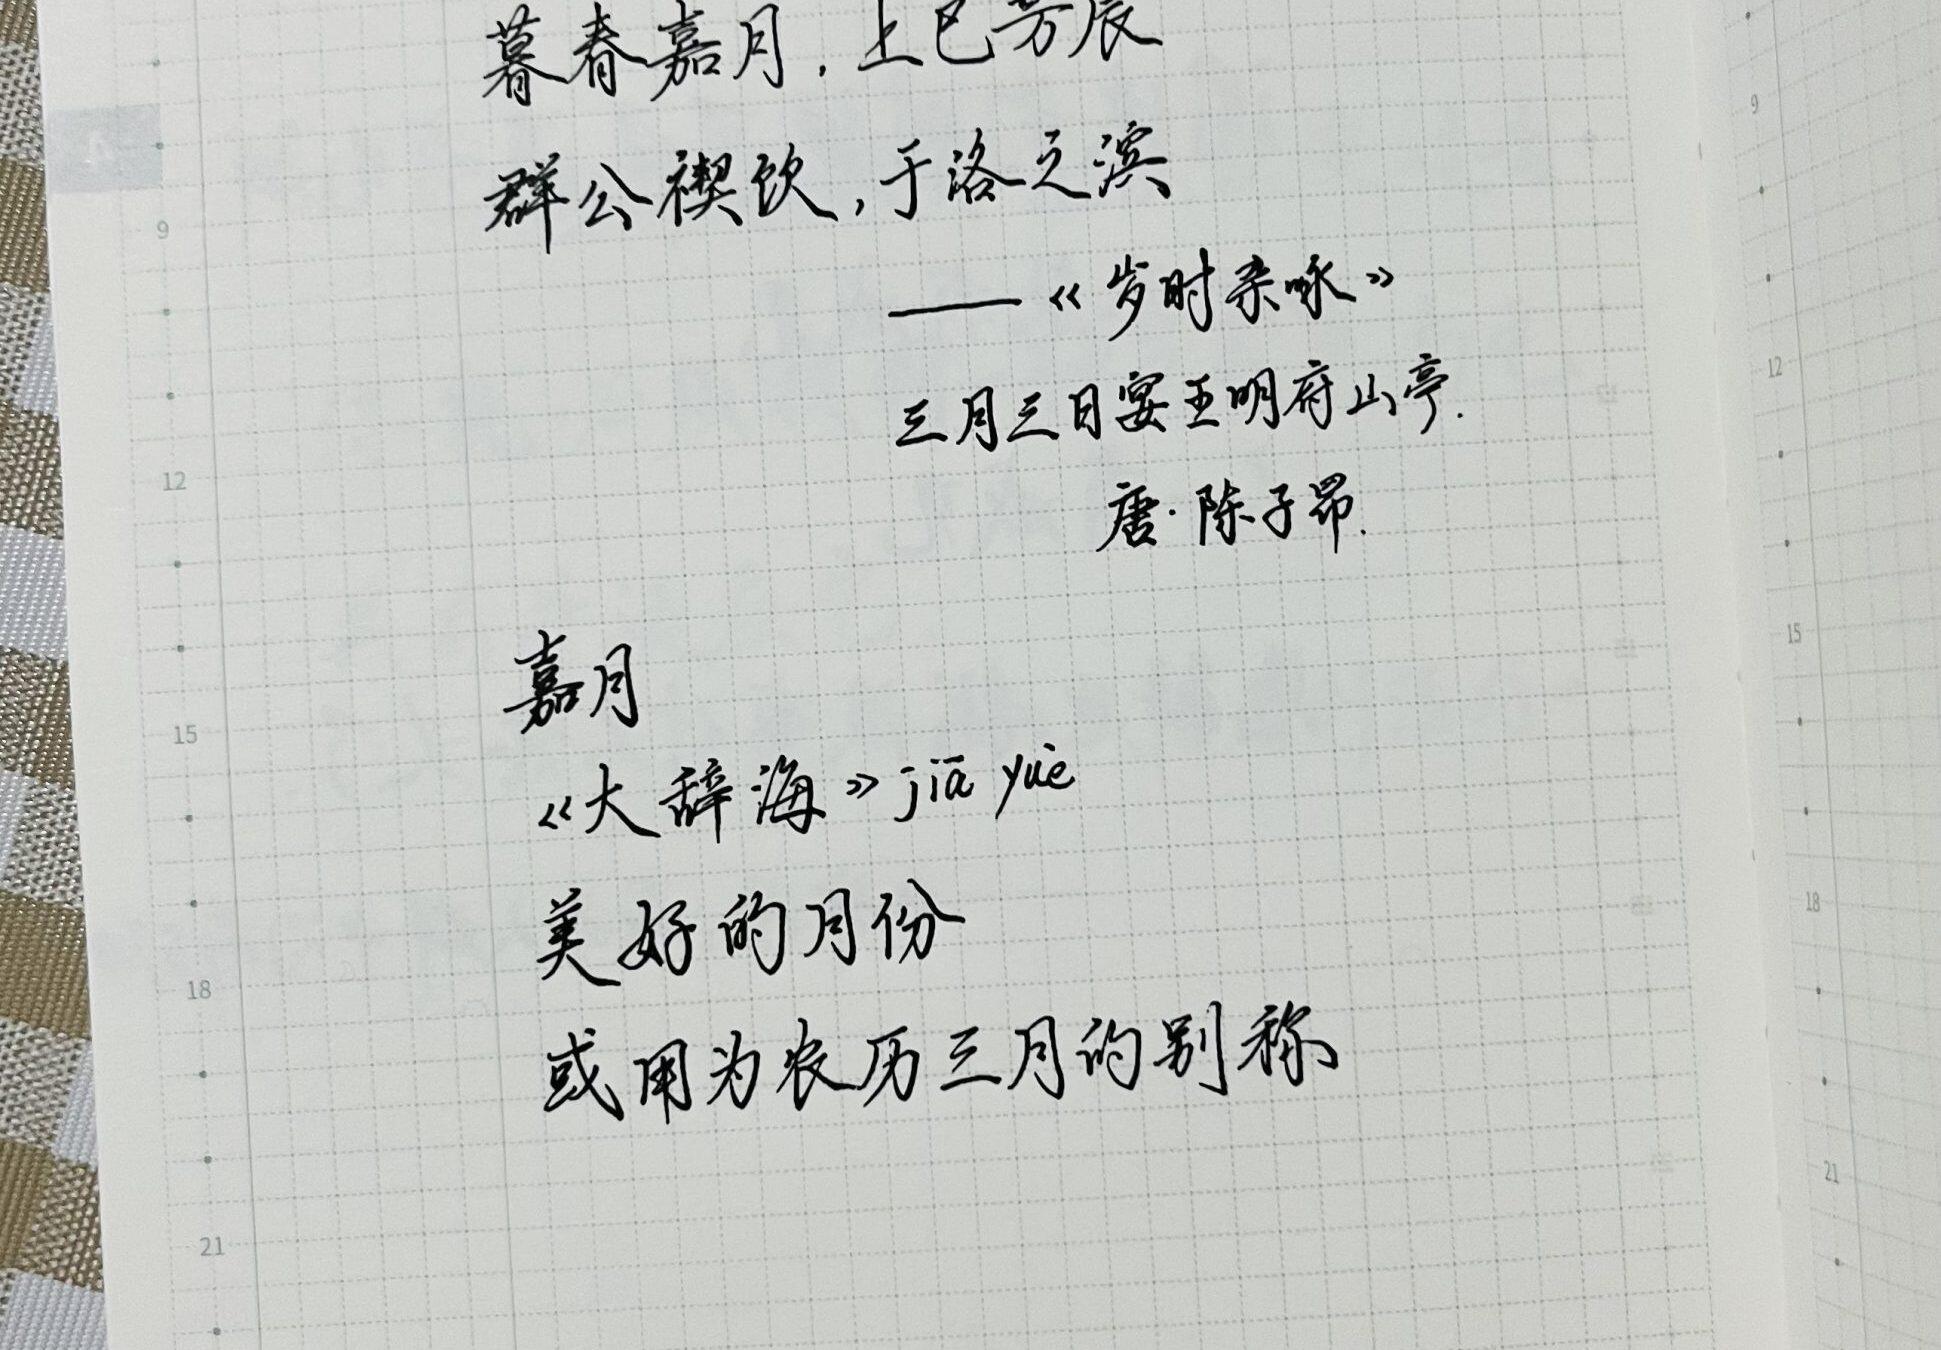 暮春嘉月，上巳芳辰
群公禊饮，于洛之滨
——《岁时杂咏》
三月三日宴王明府山亭.
唐·陈子昂.
嘉月
《大辞海》jiā yuè
美好的月份
或用为农历三月的别称
9
12
15
18
21
9
12
15
18
21